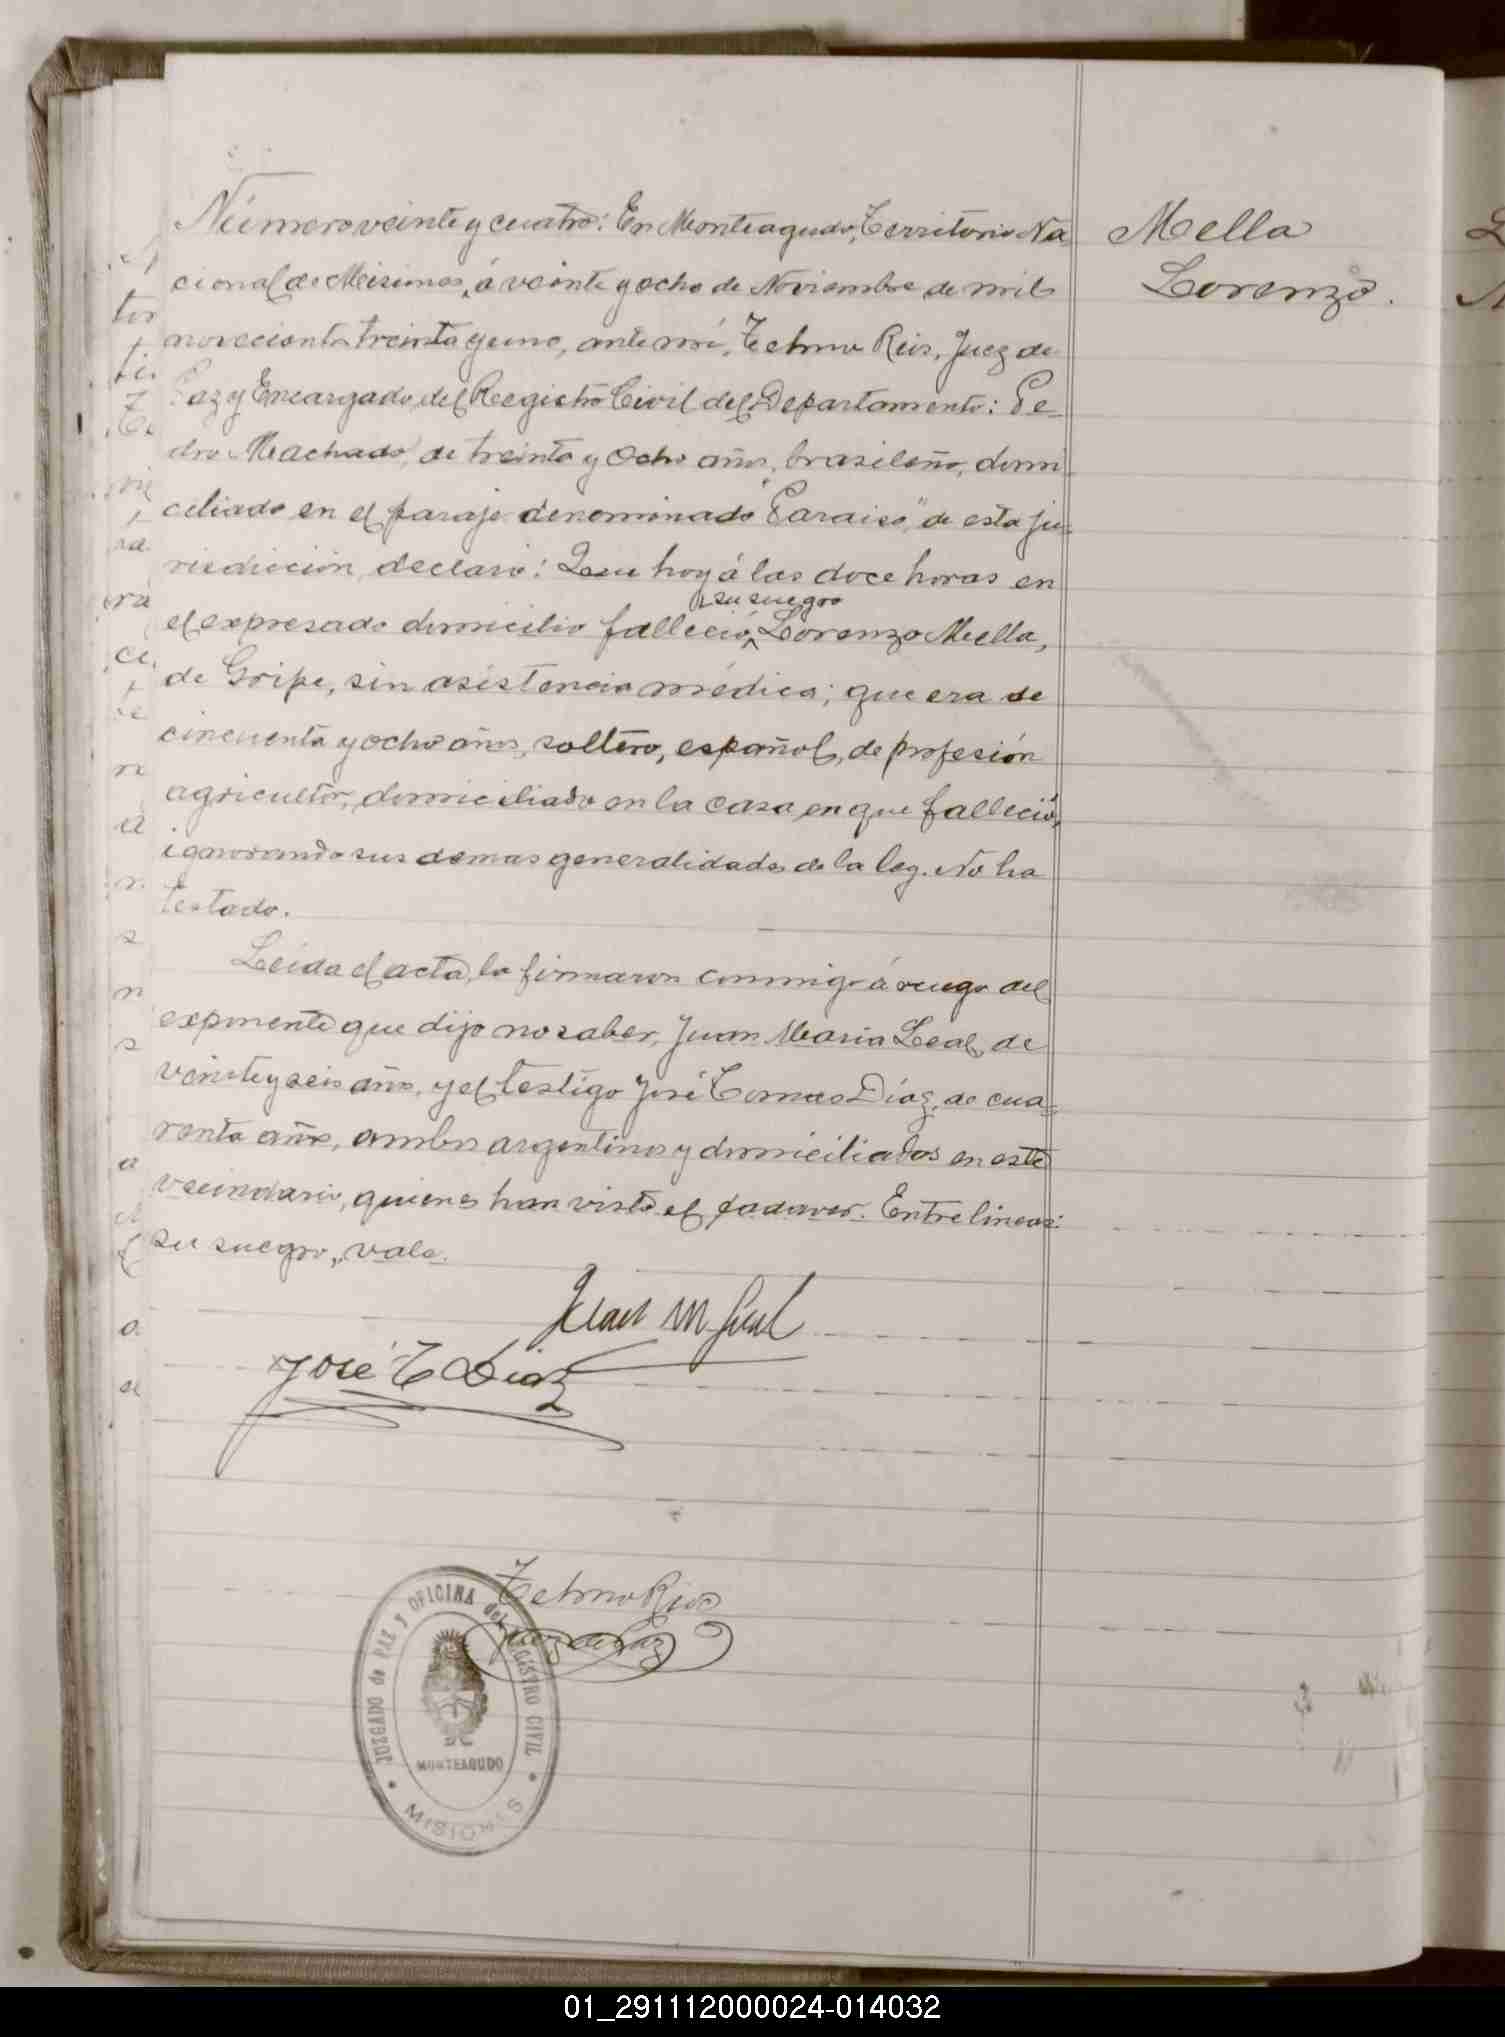 Número veinte y cuatro: En Monteagudo, Territorio Na
cional de Misiones, á veinte y ocho de Noviembre de mil
novecientos treinta y uno, ante mí, Telmo Rios, Juez de
Paz y Encargado del Registro Civil del Departamento: Pe-
dro Machado, de treinta y ocho años, brasileño, domi
ciliado en el paraje denominado "Paraiso", de esta ju-
risdicción, declaró: Que hoy á las doce horas en
su suegro
el expresado domicilio falleció, Lorenzo Mella,
de Gripe, sin asistencia médica; que era de
cincuenta y ocho años, soltero, español, de profesión
agricultor, domiciliado en la casa en que falleció,
ignorando sus demas generalidades de la ley. No ha
testado.
Leida el acta, la firmaron conmigo á ruego del
exponente que dijo no saber, Juan Maria Leal, de
veinte y seis años, y el testigo José Tomas Díaz, de cua-
renta años, ambos argentinos y domiciliados en este
vecindario, quienes han visto el cadaver. Entre lineas:
su suegro, vale.
Mella
Lorenzo.
Juan M Leal
José T Diaz
Telmo Rios
Juez de Paz
JUZGADO de PAZ Y OFICINA del REGISTRO CIVIL
MONTEAGUDO
MISIONES
01_291112000024-014032